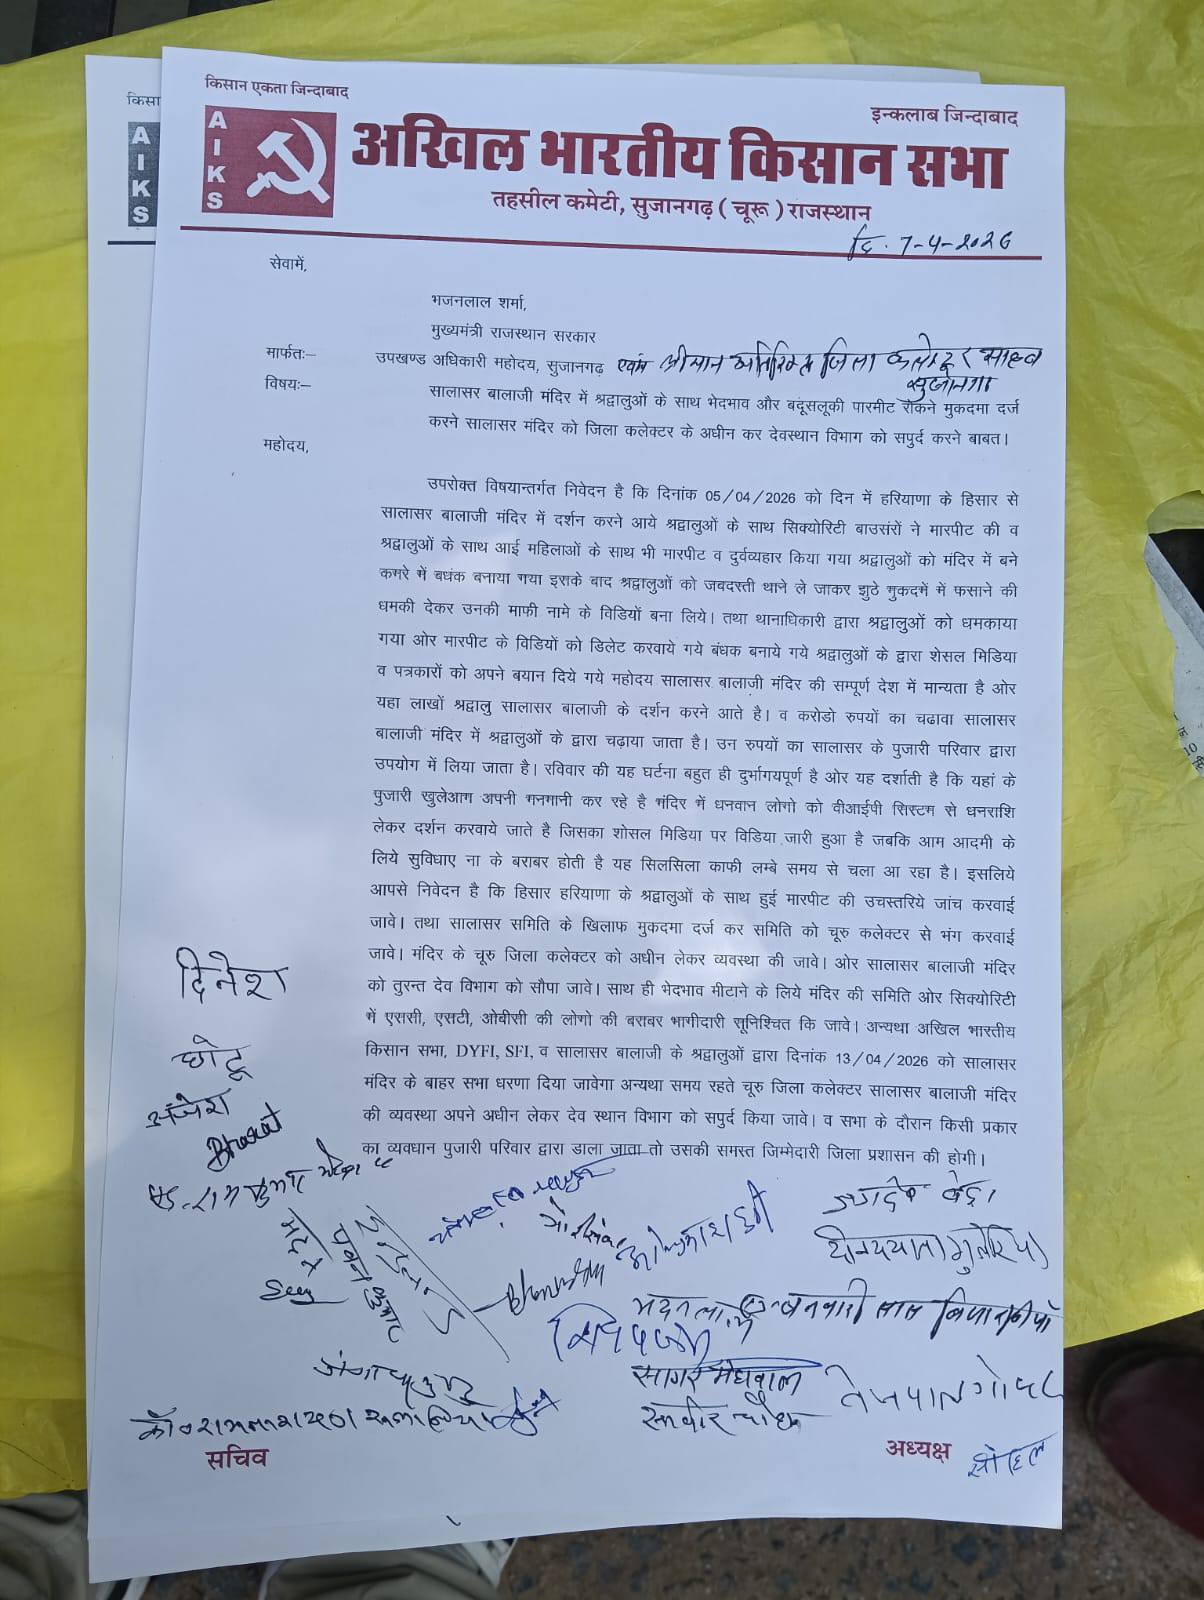 किसान एकता जिन्दाबाद
इन्कलाब जिन्दाबाद
AIKS
अखिल भारतीय किसान सभा
तहसील कमेटी, सुजानगढ़ ( चूरू ) राजस्थान
दि. 7-4-2026
सेवामें,
भजनलाल शर्मा,
मुख्यमंत्री राजस्थान सरकार
मार्फतः– उपखण्ड अधिकारी महोदय, सुजानगढ़ एवंम श्रीमान अतिरिक्त जिला कलेक्टर साहब
सुजानगढ़
विषयः– सालासर बालाजी मंदिर में श्रद्वालुओं के साथ भेदभाव और बदूसलूकी पारमीट रोकने मुकदमा दर्ज
करने सालासर मंदिर को जिला कलेक्टर के अधीन कर देवस्थान विभाग को सपुर्द करने बाबत।
महोदय,
उपरोक्त विषयान्तर्गत निवेदन है कि दिनांक 05/04/2026 को दिन में हरियाणा के हिसार से
सालासर बालाजी मंदिर में दर्शन करने आये श्रद्वालुओं के साथ सिक्योरिटी बाउसंरों ने मारपीट की व
श्रद्वालुओं के साथ आई महिलाओं के साथ भी मारपीट व दुर्वव्यहार किया गया श्रद्वालुओं को मंदिर में बने
कमरे में बधंक बनाया गया इसके बाद श्रद्वालुओं को जबदस्ती थाने ले जाकर झुठे मुकदमें में फसाने की
धमकी देकर उनकी माफी नामे के विडियों बना लिये। तथा थानाधिकारी द्वारा श्रद्वालुओं को धमकाया
गया ओर मारपीट के विडियों को डिलेट करवाये गये बंधक बनाये गये श्रद्वालुओं के द्वारा शेसल मिडिया
व पत्रकारों को अपने बयान दिये गये महोदय सालासर बालाजी मंदिर की सम्पूर्ण देश में मान्यता है ओर
यहा लाखों श्रद्वालु सालासर बालाजी के दर्शन करने आते है। व करोडो रुपयों का चढावा सालासर
बालाजी मंदिर में श्रद्वालुओं के द्वारा चढ़ाया जाता है। उन रुपयों का सालासर के पुजारी परिवार द्वारा
उपयोग में लिया जाता है। रविवार की यह घर्टना बहुत ही दुर्भागयपूर्ण है ओर यह दर्शाती है कि यहां के
पुजारी खुलेआम अपनी मनमानी कर रहे है मंदिर में धनवान लोगो को वीआईपी सिस्टम से धनराशि
लेकर दर्शन करवाये जाते है जिसका शोसल मिडिया पर विडिया जारी हुआ है जबकि आम आदमी के
लिये सुविधाए ना के बराबर होती है यह सिलसिला काफी लम्बे समय से चला आ रहा है। इसलिये
आपसे निवेदन है कि हिसार हरियाणा के श्रद्वालुओं के साथ हुई मारपीट की उचस्तरिये जांच करवाई
जावे। तथा सालासर समिति के खिलाफ मुकदमा दर्ज कर समिति को चूरु कलेक्टर से भंग करवाई
जावे। मंदिर के चूरु जिला कलेक्टर को अधीन लेकर व्यवस्था की जावे। ओर सालासर बालाजी मंदिर
को तुरन्त देव विभाग को सौपा जावे। साथ ही भेदभाव मीटाने के लिये मंदिर की समिति ओर सिक्योरिटी
में एससी, एसटी, ओबीसी की लोगो की बराबर भागीदारी सूनिश्चित कि जावे। अन्यथा अखिल भारतीय
किसान सभा, DYFI, SFI, व सालासर बालाजी के श्रद्वालुओं द्वारा दिनांक 13/04/2026 को सालासर
मंदिर के बाहर सभा धरणा दिया जावेगा अन्यथा समय रहते चूरु जिला कलेक्टर सालासर बालाजी मंदिर
की व्यवस्था अपने अधीन लेकर देव स्थान विभाग को सपुर्द किया जावे। व सभा के दौरान किसी प्रकार
का व्यवधान पुजारी परिवार द्वारा डाला जाता तो उसकी समस्त जिम्मेदारी जिला प्रशासन की होगी।
दिनेश
छोटू
Bharat
मदन
पवन कुमार
ओमप्रकाश
मदनलाल
बनवारी लाल
सागर मेघवाल
तेजपाल गोदारा
सचिव
अध्यक्ष